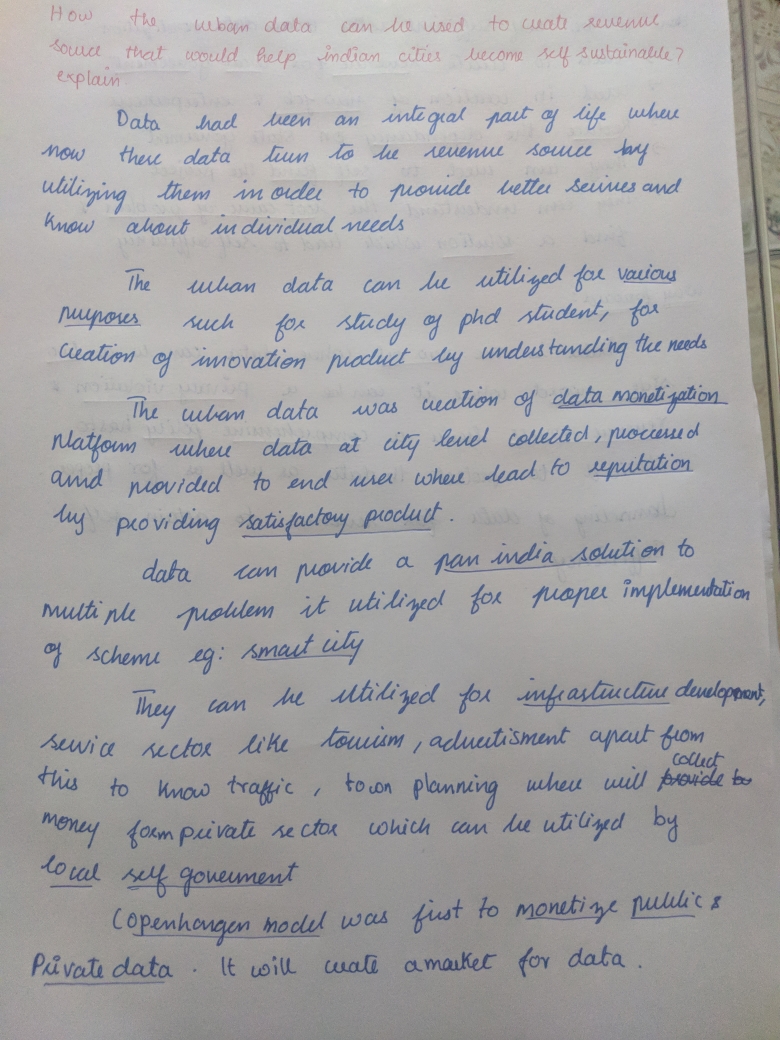 How the urban data can be used to create revenue
source that would help indian cities become self sustainable?
explain
Data had been an integral part of life where
now there data turn to be revenue source by
utilizing them in order to provide better servies and
know about individual needs
The urban data can be utilized for various
purposes such for study of phd student, for
creation of innovation product by understanding the needs
The urban data was creation of data monetization
platform where data at city level collected, processed
and provided to end user where lead to reputation
by providing satisfactory product.
data can provide a pan india solution to
multiple problem it utilized for proper implementation
of scheme eg: smart city
They can be utilized for infrastructure development,
service sector like tourism, advertisment apart from
this to know traffic, town planning where will collect
money form private sector which can be utilized by
local self goverment
Copenhangen model was first to monetize public &
Private data. It will create a market for data.